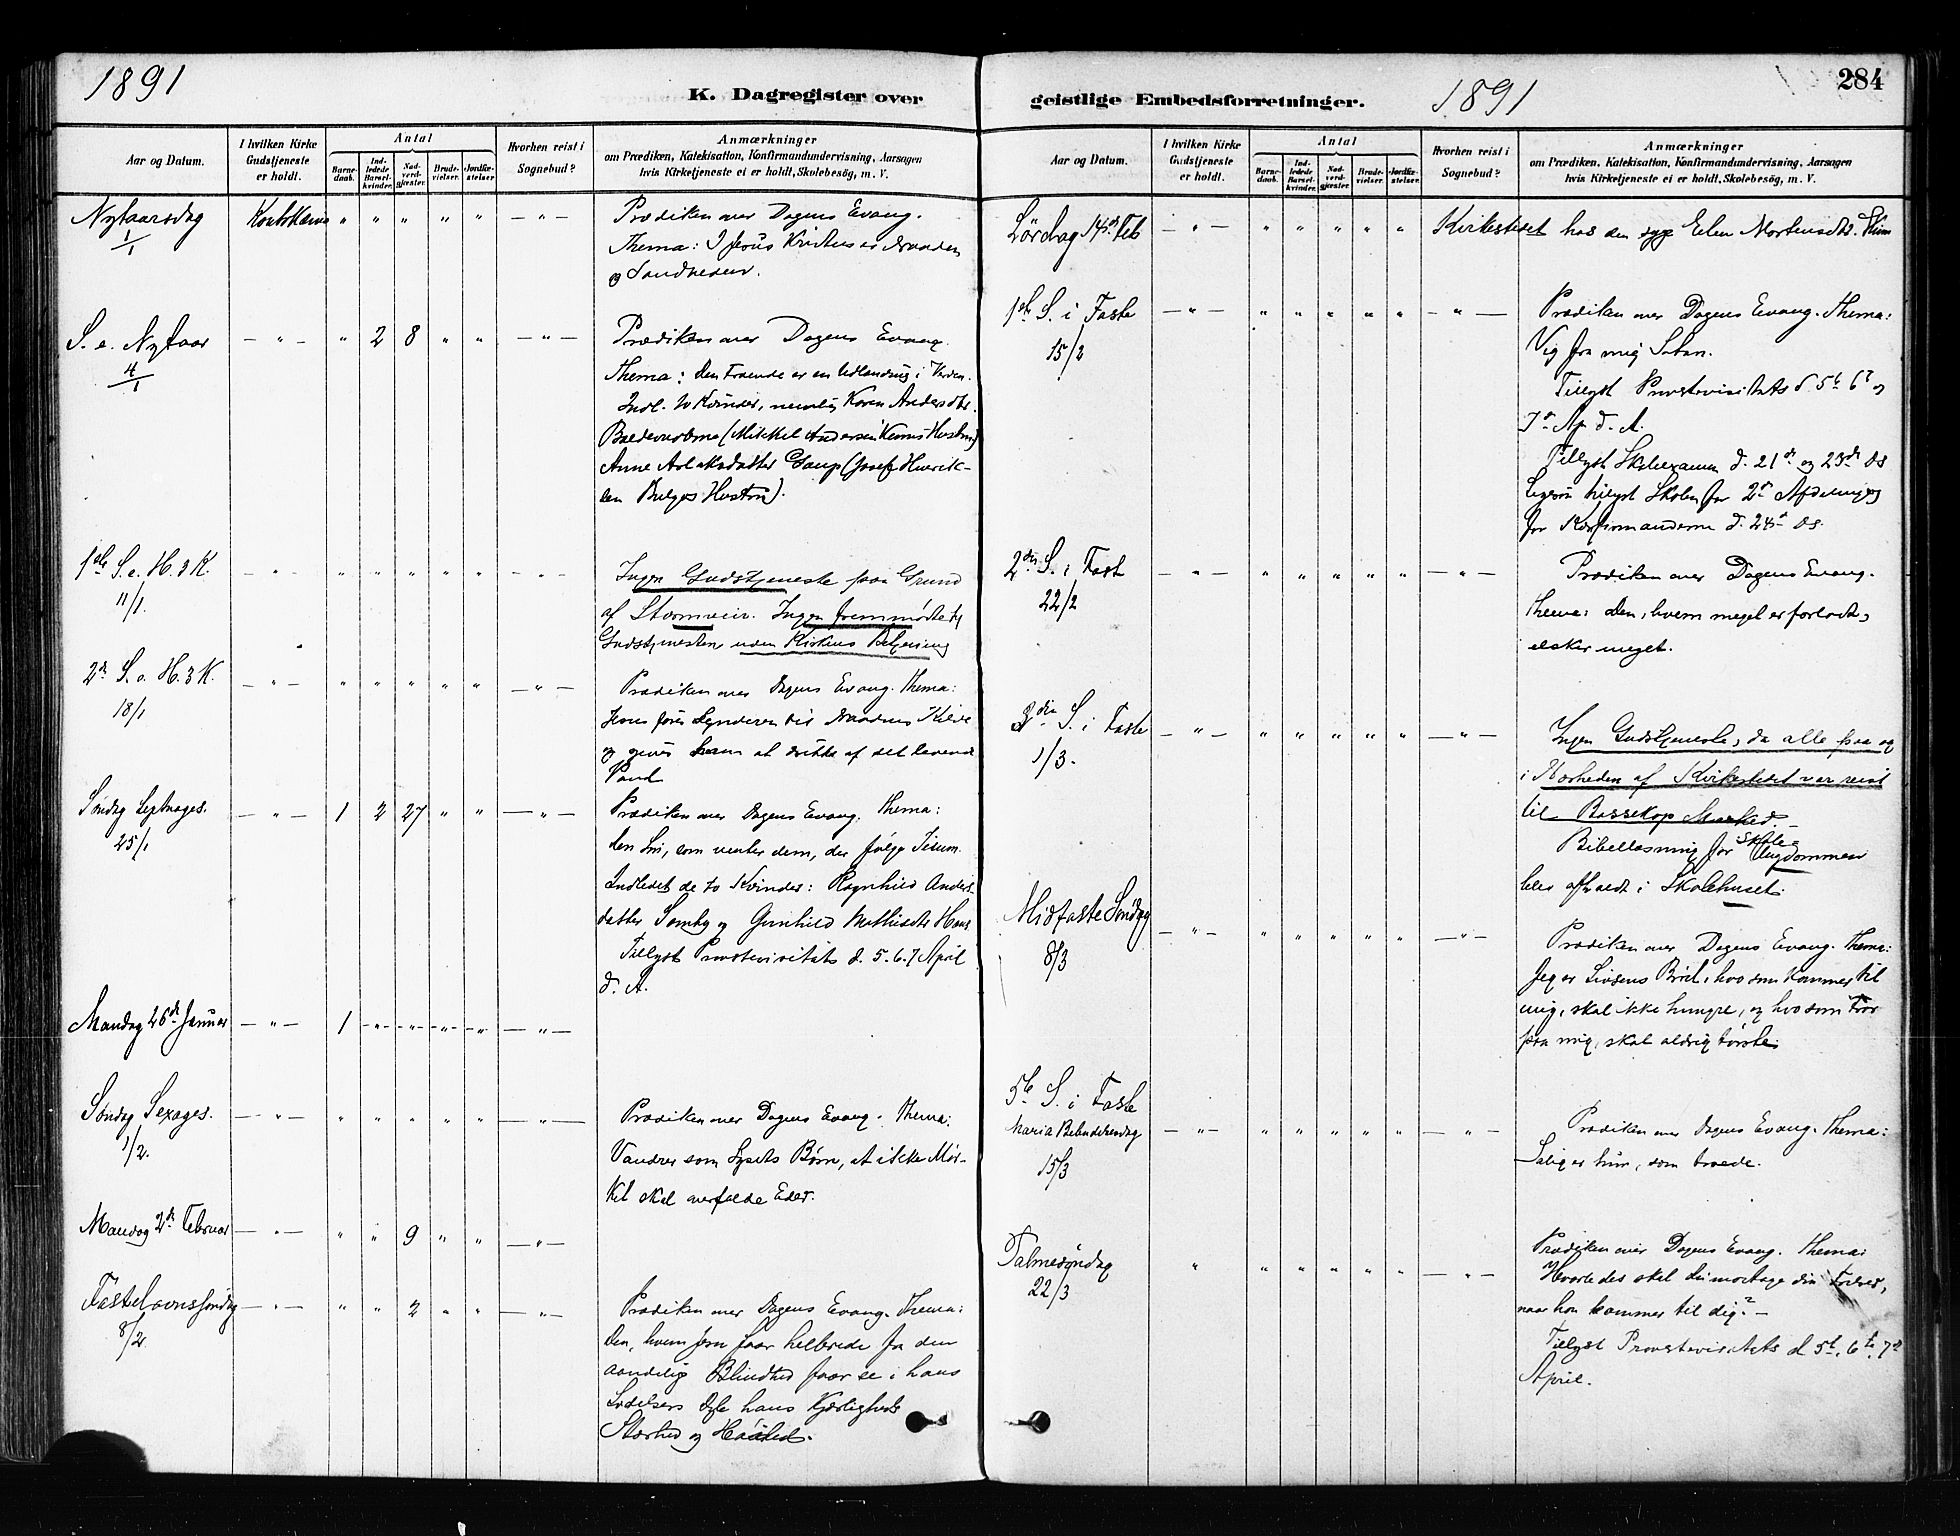 1891
K. Dagregister over
Aar og Datum.
I hvilken Kirke Gudstjeneste er holdt.
Antal
Barnedaab.
Indledede Barselkvinder.
Nadverdgjester.
Brudevielser.
Jordfæstelser.
Hvorhen reist i Sognebud?
Anmærkninger
om Prædiken, Katekisation, Konfirmandundervisning, Aarsagen
hvis Kirketjeneste ei er holdt, Skolebesög, m. V.
Nytaarsdag 1/1 " " " " " — " — Prædiken over Dagens Evang.
Thema: I Jesus Kristus er Naaden
og Sandheden.
S. e. Nytaar 4/1 — " — " 2 8 " " — " — Prædiken over Dagens Evang.
Thema: Den Troende er en Udlænding i Verden.
Indl. to Kvinder, nemlig Karen Andersdtr.
(Mikkel Andersen Hustru)
Anne Aslaksdatter Gaup (Josef Henrik-
sen Hustru).
1ste S. e. H. 3 K. 11/1. — " — " " " " " — " — Ingen Gudstjeneste paa Grund
af Stormveir. Ingen fremmødte
Gudstjenesten uden Kirkens Betjening
2den S. e. H. 3 K. 18/1 — " — " " " " " — " — Prædiken over Dagens Evang. Thema:
Jesus fører Synderen til Naadens Kilde
og giver ham at drikke af det levende
Vand
Søndag Septuages. 25/1 — " — 1 2 27 " " — " — Prædiken over Dagens Evang. Thema:
den Løn, som venter dem, der følge Jesum.
Indledet de to Kvinder: Ragnhild Anders-
datter Somby og Gunhild Mathisdtr
Tillyst Provstevisitats d. 5. 6. 7 April
d. A.
Mandag 26de Januar — " — 1 " " " " — " —
Søndag Sexages. 1/2. — " — " " " " " — " — Prædiken over Dagens Evang. Thema:
Vandrer som Lysets Børn, at ikke Mør-
ket skal overfalde Eder.
Mandag 2de Februar — " — " " 9 " " — " —
Fastelavnssøndag 8/2 — " — " " 2 " " — " — Prædiken over Dagens Evang. Thema:
Den, hvem Jesu faar helbrede fra den
aandelig Blindhed faar se i hans
Lidelsers Dyb hans Kjærligheds
Storhed og
geistlige Embedsforretninger.
1891
284
Aar og Datum.
I hvilken Kirke Gudstjeneste er holdt.
Antal
Barnedaab.
Indledede Barselkvinder.
Nadverdgjester.
Brudevielser.
Jordfæstelser.
Hvorhen reist i Sognebud?
Anmærkninger
om Prædiken, Katekisation, Konfirmandundervisning, Aarsagen
hvis Kirketjeneste ei er holdt, Skolebesög, m. V.
Lördag 14de Feb — " — " " " " " Kirkestedet hos den syge Elen Mortensdtr.
1ste S. i Faste 15/2 — " — " " " " " — " — Prædiken over Dagens Evang. Thema:
Vig fra mig Satan.
Tillyst Provstevisitats d. 5te 6te og
7de Ap d. A.
Tillyst Skolexamen d. 21de og 23de ds
ligesaa tillyst Skolen for 2den Afdeling og
for Konfirmanderne d. 24de ds.
2den S. i Fast 22/2 — " — " " " " " — " — Prædiken over Dagens Evang.
Thema: Den, hvem meget er forladt,
elsker meget.
3die S. i Faste 1/3. — " — " " " " " — " — Ingen Gudstjeneste, da alle paa og
i Nærheden af Kirkestedet var reist
til Bossekop Marked. —
Bibellæsning for Skole Ungdommen
blev afholdt i Skolehuset.
Midfaste Søndag 8/3 — " — " " " " " — " — Prædiken over Dagens Evang. Thema:
Jeg er Livsens Brød, hvo som kommer til
mig, skal ikke hungre, og hvo som tror
paa mig, skal aldrig tørste.
5te S. i Faste
Maria Bebudelsesdag 15/3 — " — " " " " " — " — Prædiken over Dagens Evang. Thema:
Salig er hun, som troede.
Palmesøndag 22/3 " " " " " " — " — Prædiken over Dagens Evang. Thema:
Hvorledes skal du modtage din Frelser,
naar han kommer til dig? —
Tillyst Provstevisitats d 5te, 6te, 7de
April.